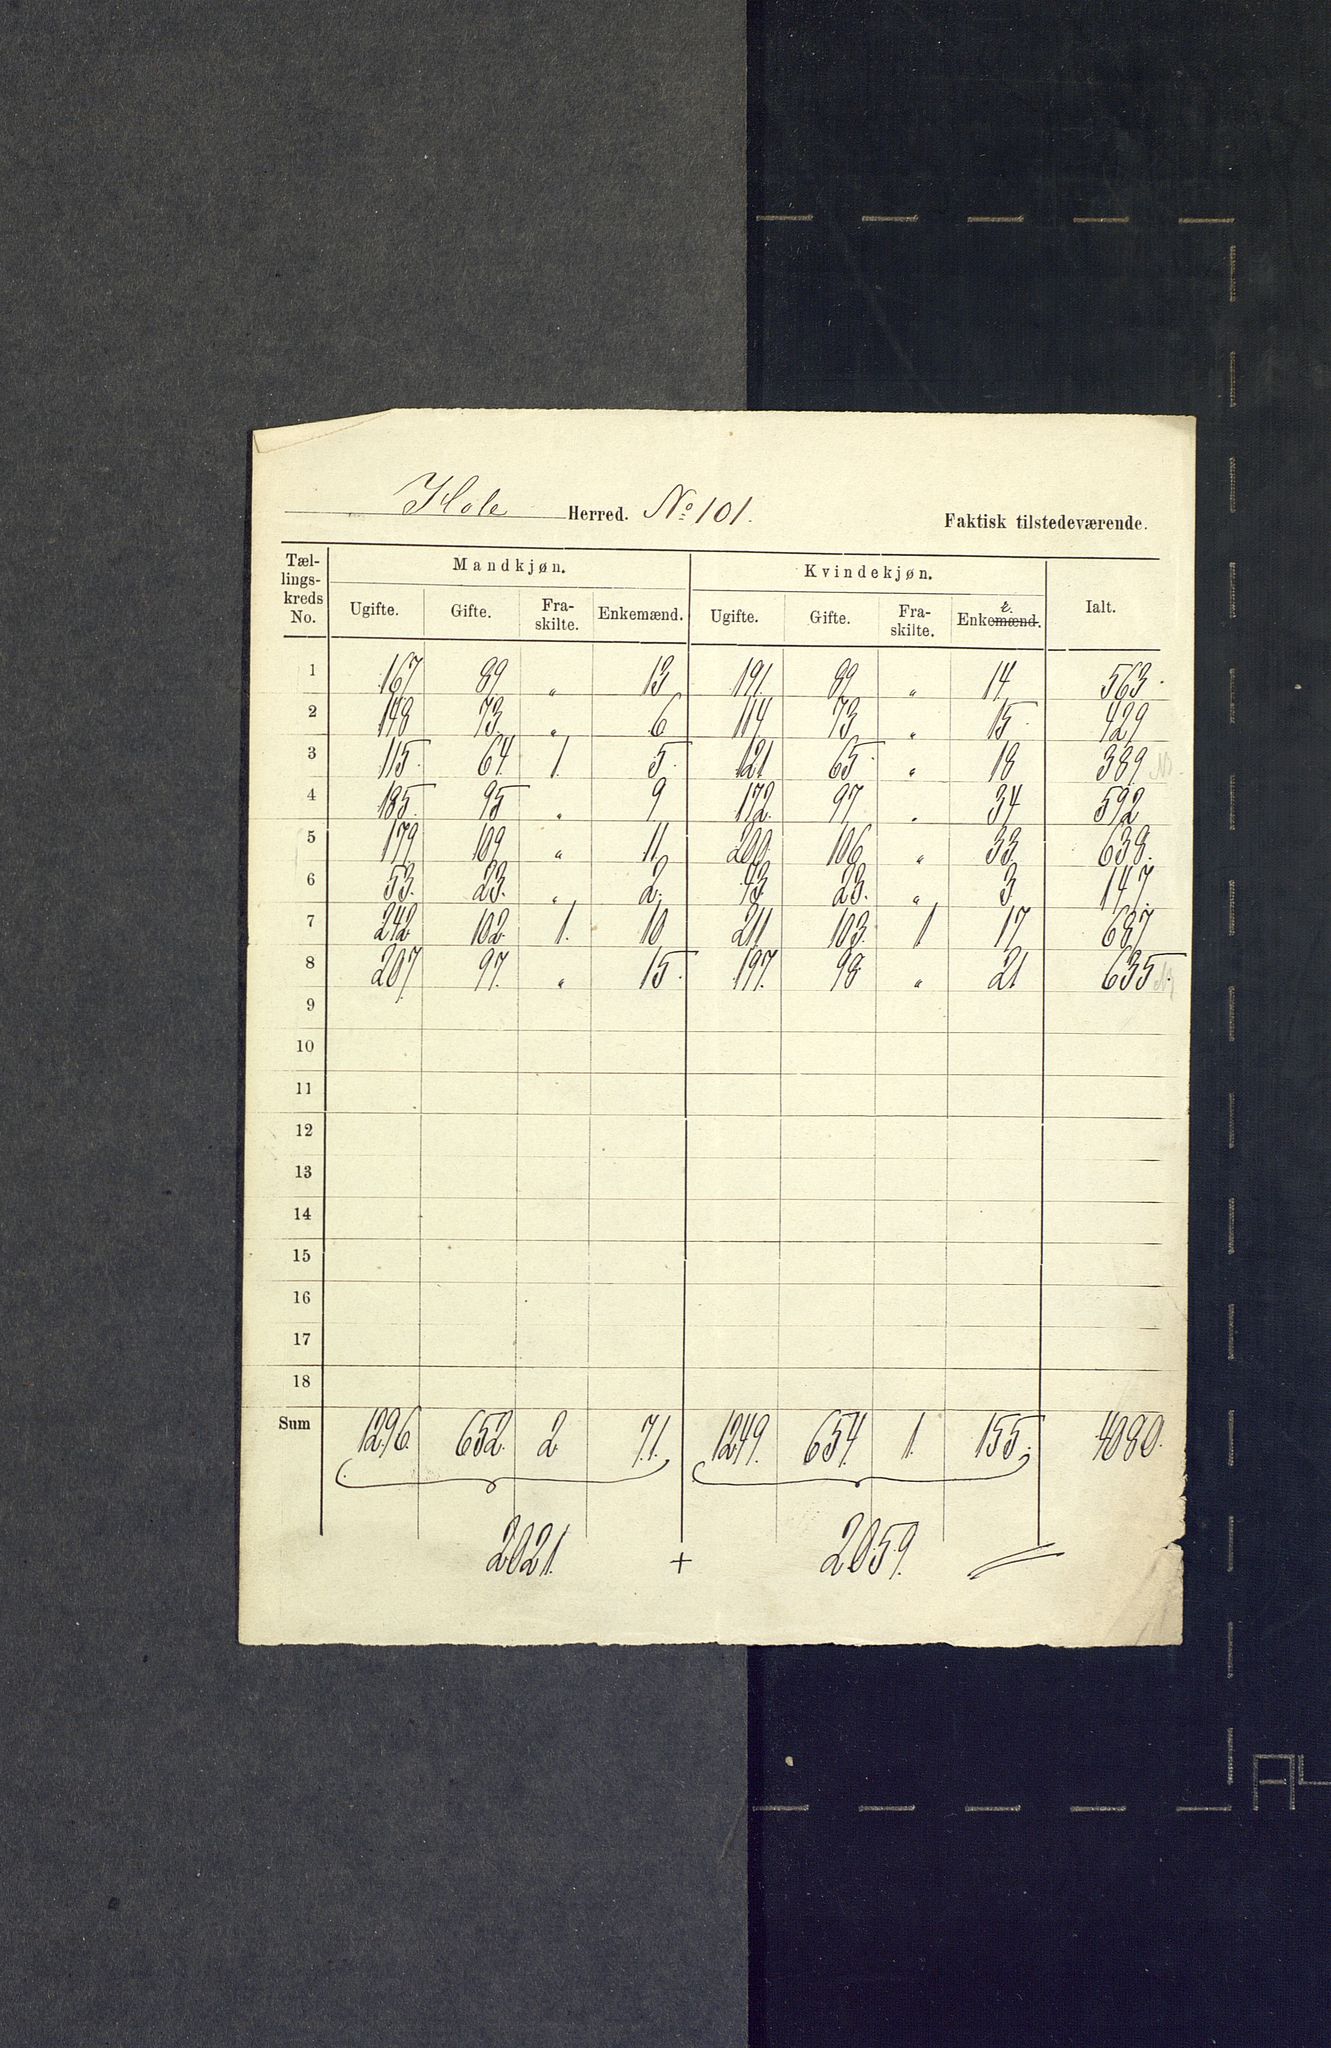 Hole Herred. No 101. Faktisk tilstedeværende.
Tællingskreds No. Mandkjøn. Kvindekjøn. Ialt.
Ugifte. Gifte. Fraskilte. Enkemænd. Ugifte. Gifte. Fraskilte. Enkemænd. r.
1 167 89 „ 13 191 89 „ 14 563
2 148 73 „ 6 114 73 „ 15 429
3 115 64 1 5 121 65 „ 18 389
4 185 95 „ 9 172 97 „ 34 592
5 179 109 „ 11 200 106 „ 33 638
6 53 23 „ 2 43 23 „ 3 147
7 242 102 1 10 211 103 1 17 687
8 207 97 „ 15 197 98 „ 21 635
9
10
11
12
13
14
15
16
17
18
Sum 1296 652 2 71 1249 654 1 155 4080
2021 + 2059
A4